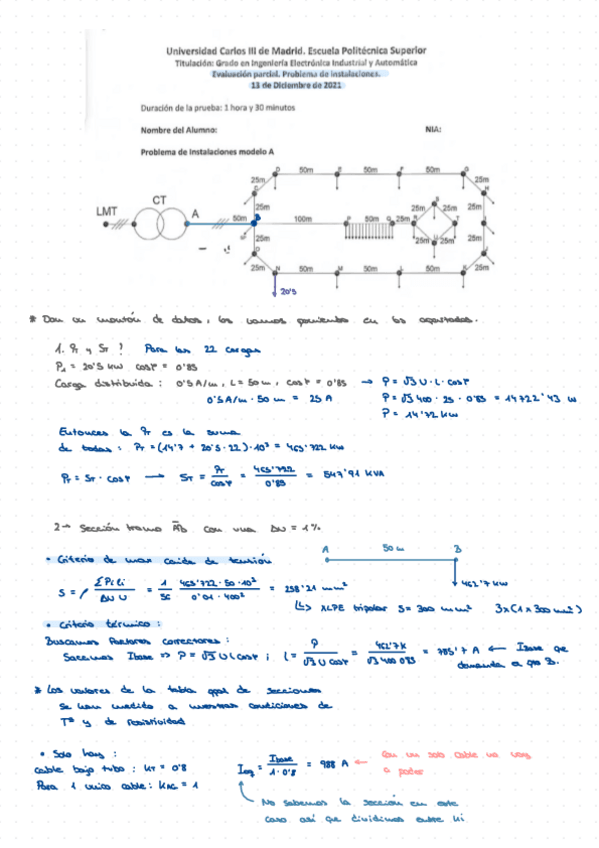 Universidad Carlos III de Madrid. Escuela Politécnica Superior
Titulación: Grado en Ingeniería Electrónica Industrial y Automática
Evaluación parcial. Problema de instalaciones.
13 de Diciembre de 2021
Duración de la prueba: 1 hora y 30 minutos
Nombre del Alumno: NIA:
Problema de Instalaciones modelo A
50m 50m 50m
25m 25m
LMT CT A 50m B 25m 100m 50m 25m 25m 25m 25m
25m 25m 25m 25m
25m 50m 50m 50m 25m
20'5
* Dan un montón de datos, los vamos poniendo en los apartados.
1. Pr y Sr? Para las 22 cargas
P1 = 20'5 kW cosφ = 0'85
Carga distribuida: 0'5 A/m, L = 50m, cosφ = 0'85 → P = √3 U · L · cosφ
0'5 A/m · 50 m = 25 A P = √3 400 · 25 · 0'85 = 14722'43 W
P = 14'72 kW
Entonces la Pr es la suma
de todas: Pr = (14'7 + 20'5 · 22) · 10³ = 465'722 kW
Pr = Sr · cosφ → Sr = Pr / cosφ = 465'722 / 0'85 = 547'91 KVA
2 → Sección tramo AB con una ΔU = 1%
• Criterio de max caida de tensión A 50 m B
S = ρ ΣPi li / ΔU U = 1/56 465'722 · 50 · 10³ / 0'01 · 400² = 258'21 mm² 462'7 kW
(↳ XLPE tripolar S = 300 mm² 3x(1x300 mm²)
• Criterio térmico:
Buscamos factores correctores:
Sacamos Ibase ⇒ P = √3 U I cosφ; I = P / √3 U cosφ = 462'7k / √3 400 0'85 = 785'7 A ← Ibase que
demanda a 50 B.
* Los valores de la tabla gral de secciones
se han medido a nuestras condiciones de
Tª y de resistividad
• Solo hay:
cable bajo tubo: KT = 0'8 Ieq = Ibase / 1 · 0'8 = 988 A ← Con un solo cable no vamos
a poder
Para 1 unico cable: KAG = 1
No sabemos la sección en este
caso así que dividimos entre Ki